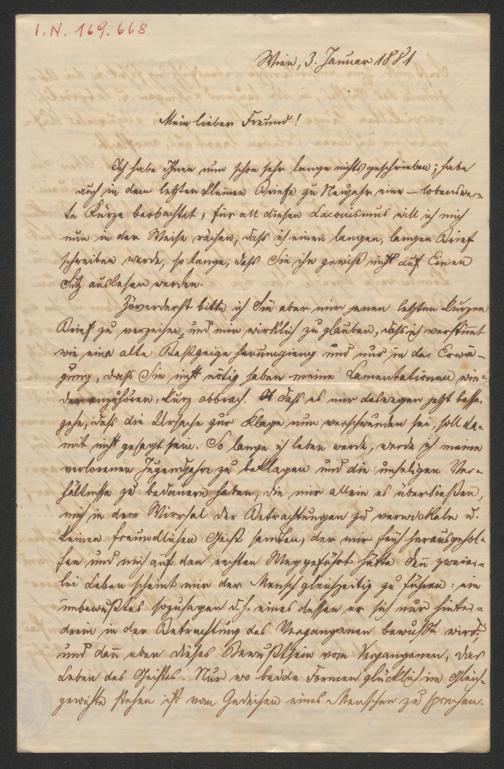 I.N. 169.668
Wien, 3. Januar 1881
Mein lieber Freund!
Ich habe Ihnen nun schon sehr lange nichts geschrieben; habe
auch in dem letzten kleinen Briefe zu Neujahr eine – lobenswer-
te Kürze beobachtet; für all diesen Laconismus will ich mich
nun in der Weise rächen, daß ich einen langen, langen Brief
schreiben werde, so lange, daß Sie ihn gewiß nicht auf Einen
Sitz auslesen werden.
Zuvörderst bitte ich Sie aber mir jenen letzten kurzen
Brief zu verzeihen, und mir wirklich zu glauben, daß ich verstimmt
wie eine alte Baßgeige herumgieng und nur in der Erwä-
gung, daß Sie nicht nötig haben meine Lamentationen wie-
der anzuhören, kurz abbrach. daß es mir deswegen jetzt besser
gehe, daß die Ursache zur Klage nun verschwunden sei, soll da-
mit nicht gesagt sein. So lange ich leben werde, werde ich meine
verlorenen Jugendjahre zu beklagen und die unseligen Ver-
hältnisse zu bedauern haben, die mir allein es überließen,
mich in dem Wirrsal der Betrachtungen zu verwickeln u.
keinen freundlichen Geist sandten, der mir herausgehol-
fen und mich auf den rechten Weg geführt hätte. Denn zweier-
lei Leben scheint mir der Mensch gleichzeitig zu führen: ein
unbewußtes sozusagen d.h. eines dessen er sich nur hinter-
drein in der Betrachtung des Vergangenen bewußt wird,
und dann eben dieses Bewußtsein vom Vergangenen, das
Leben des Geistes. Nur wo beide Formen glücklich im Gleich-
gewichte stehen ist vom Gedeihen eines Menschen zu sprechen.